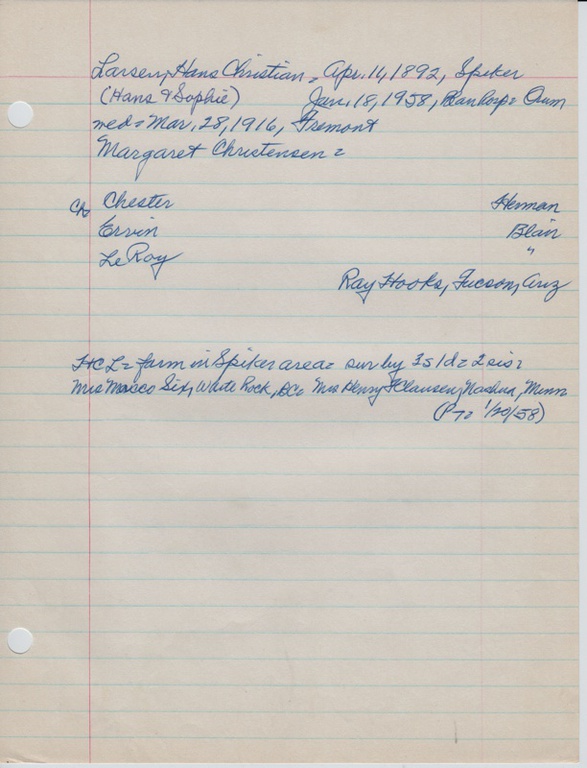 Larsen, Hans Christian = Apr. 14, 1892, Spiker
(Hans & Sophie) Jan. 18, 1958, = Crum
med = Mar. 28, 1916, Fremont
Margaret Christensen =
Ch = Chester Herman
Ervin Blair
LeRoy "
Ray Hooks, Tucson, Ariz
HCL = farm in Spiker area = sur by 3s 1d = 2 sis =
Mrs Six, White Rock, BC = Mrs Henry Clausen, Nashua, Minn
(P T = 1/20/58)